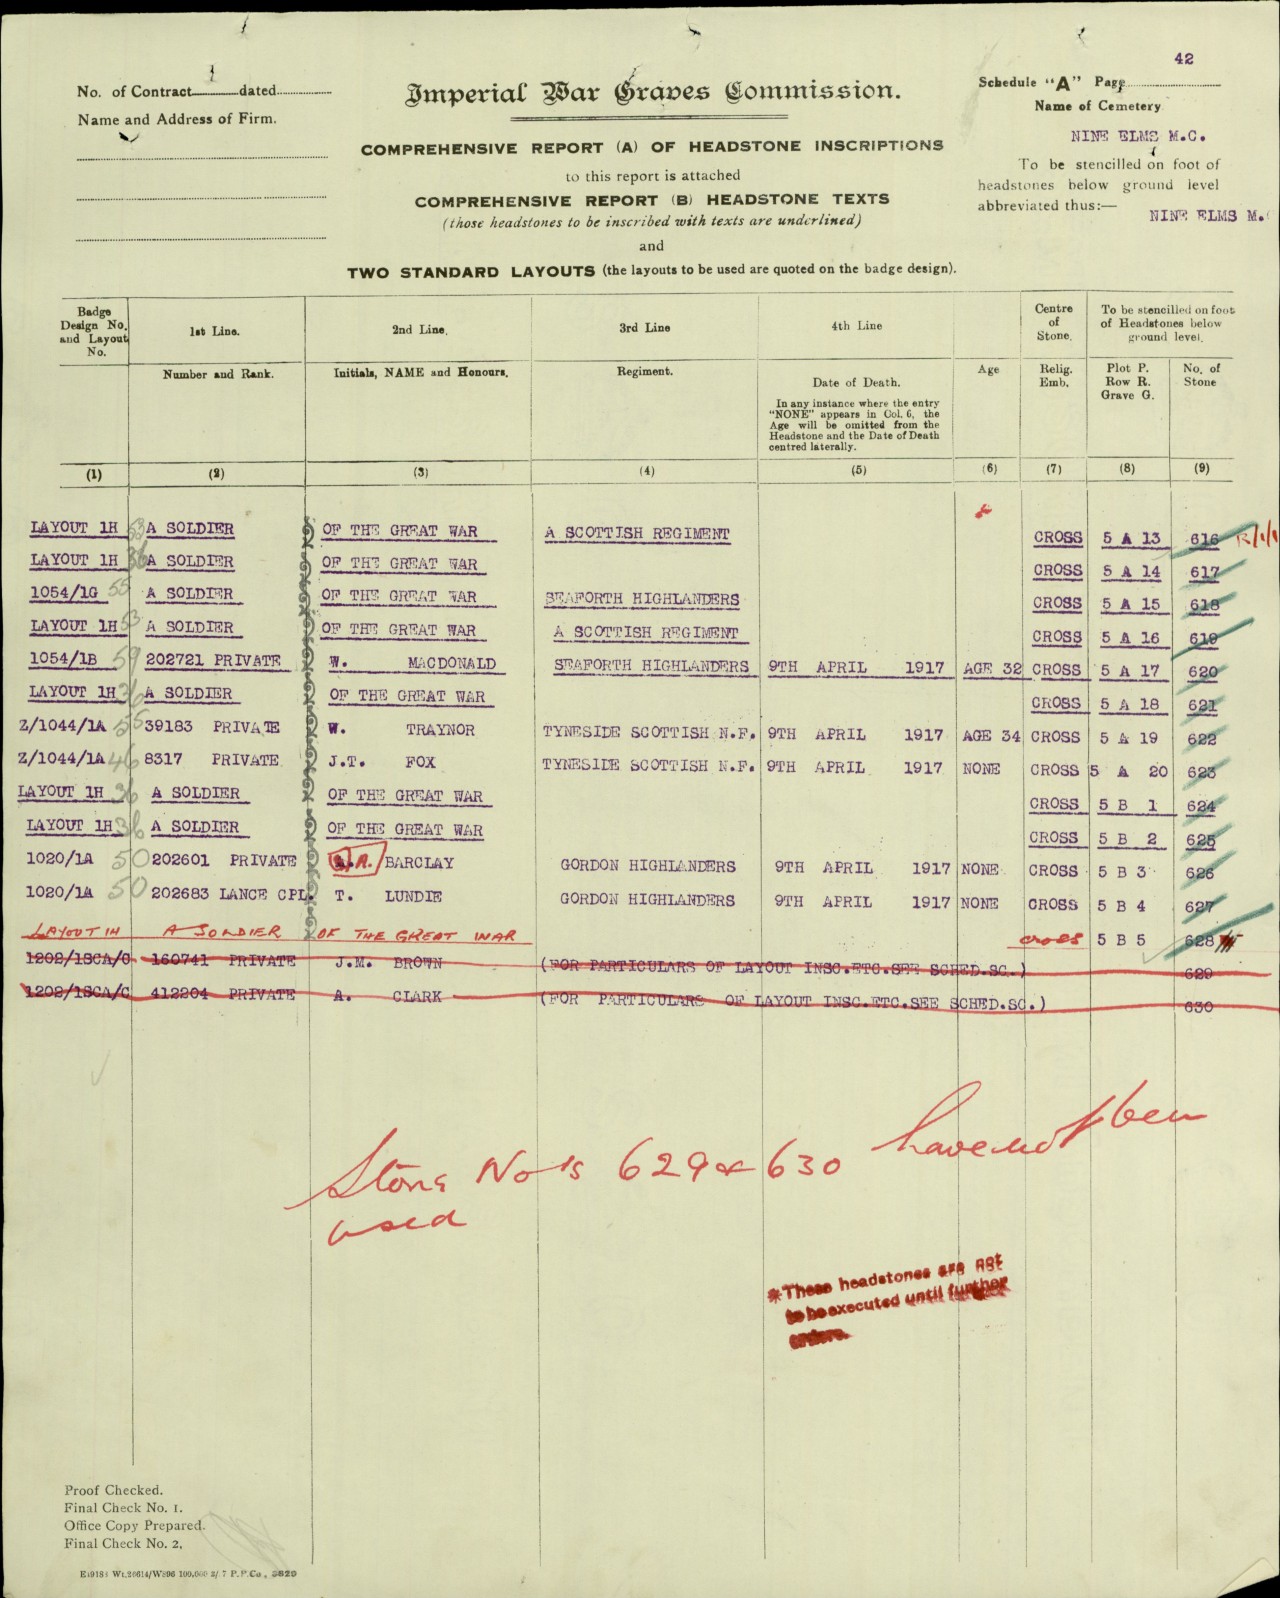 42
No. of Contract dated
Name and Address of Firm.
Imperial War Graves Commission.
Schedule "A" Page
Name of Cemetery
NINE ELMS M.C.
To be stencilled on foot of
headstones below ground level
abbreviated thus:—
NINE ELMS M.
COMPREHENSIVE REPORT (A) OF HEADSTONE INSCRIPTIONS
to this report is attached
COMPREHENSIVE REPORT (B) HEADSTONE TEXTS
(those headstones to be inscribed with texts are underlined)
and
TWO STANDARD LAYOUTS (the layouts to be used are quoted on the badge design).
Badge Design No. and Layout No. 1st Line. 2nd Line. 3rd Line 4th Line Centre of Stone. To be stencilled on foot of Headstones below ground level.
Number and Rank. Initials, NAME and Honours. Regiment. Date of Death. Age Relig. Emb. Plot P. Row R. Grave G. No. of Stone
In any instance where the entry
"NONE" appears in Col. 6, the
Age will be omitted from the
Headstone and the Date of Death
centred laterally.
(1) (2) (3) (4) (5) (6) (7) (8) (9)
LAYOUT 1H 53 A SOLDIER OF THE GREAT WAR A SCOTTISH REGIMENT CROSS 5 A 13 616
LAYOUT 1H 36 A SOLDIER OF THE GREAT WAR CROSS 5 A 14 617
1054/1G 55 A SOLDIER OF THE GREAT WAR SEAFORTH HIGHLANDERS CROSS 5 A 15 618
LAYOUT 1H 53 A SOLDIER OF THE GREAT WAR A SCOTTISH REGIMENT CROSS 5 A 16 619
1054/1B 59 202721 PRIVATE W. MACDONALD SEAFORTH HIGHLANDERS 9TH APRIL 1917 AGE 32 CROSS 5 A 17 620
LAYOUT 1H 36 A SOLDIER OF THE GREAT WAR CROSS 5 A 18 621
Z/1044/1A 55 39183 PRIVATE W. TRAYNOR TYNESIDE SCOTTISH N.F. 9TH APRIL 1917 AGE 34 CROSS 5 A 19 622
Z/1044/1A 46 8317 PRIVATE J.T. FOX TYNESIDE SCOTTISH N.F. 9TH APRIL 1917 NONE CROSS 5 A 20 623
LAYOUT 1H 36 A SOLDIER OF THE GREAT WAR CROSS 5 B 1 624
LAYOUT 1H 36 A SOLDIER OF THE GREAT WAR CROSS 5 B 2 625
1020/1A 50 202601 PRIVATE A. BARCLAY GORDON HIGHLANDERS 9TH APRIL 1917 NONE CROSS 5 B 3 626
1020/1A 50 202683 LANCE CPL. T. LUNDIE GORDON HIGHLANDERS 9TH APRIL 1917 NONE CROSS 5 B 4 627
LAYOUT 1H A SOLDIER OF THE GREAT WAR cross 5 B 5 628
1202/1SCA/C 160741 PRIVATE J.M. BROWN (FOR PARTICULARS OF LAYOUT INSC.ETC.SEE SCHED.SC.) 629
1202/1SCA/C 412204 PRIVATE A. CLARK (FOR PARTICULARS OF LAYOUT INSC.ETC.SEE SCHED.SC.) 630
Stone No's 629 & 630 have not been
used
*These headstones are not
to be executed until further
orders.
Proof Checked.
Final Check No. 1.
Office Copy Prepared.
Final Check No. 2.